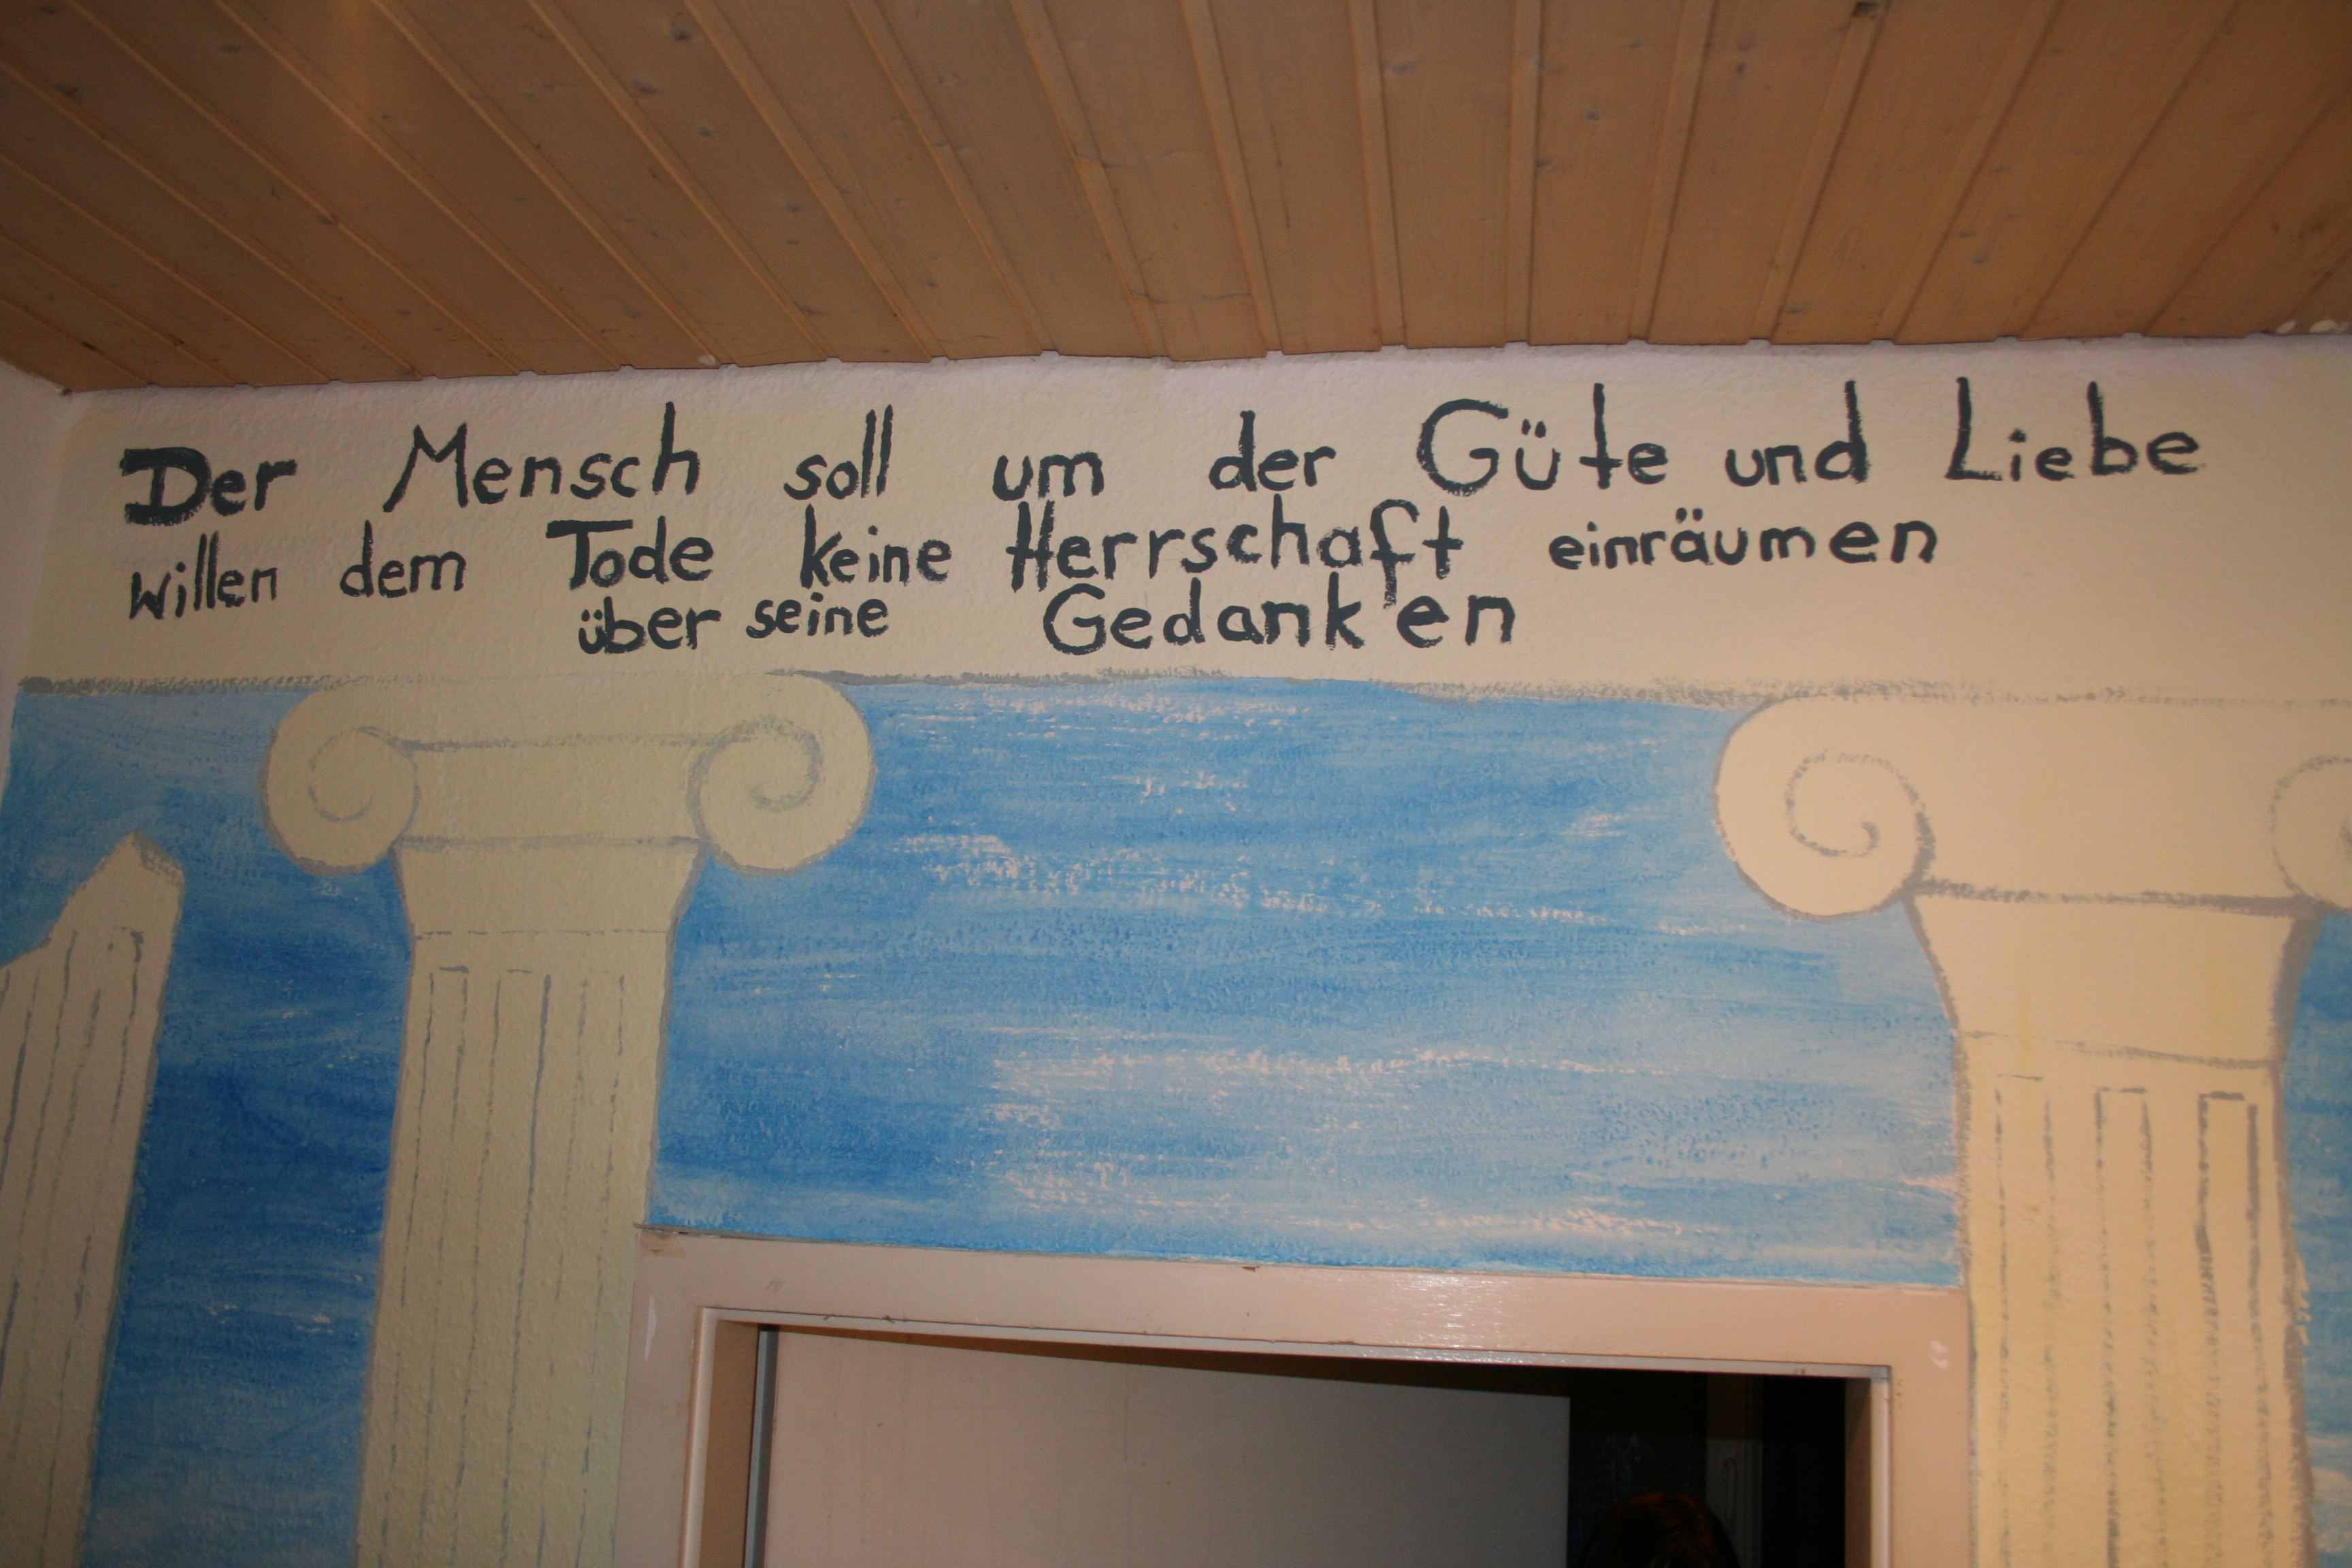 Der Mensch soll um der Güte und Liebe
willen dem Tode keine Herrschaft einräumen
über seine Gedanken